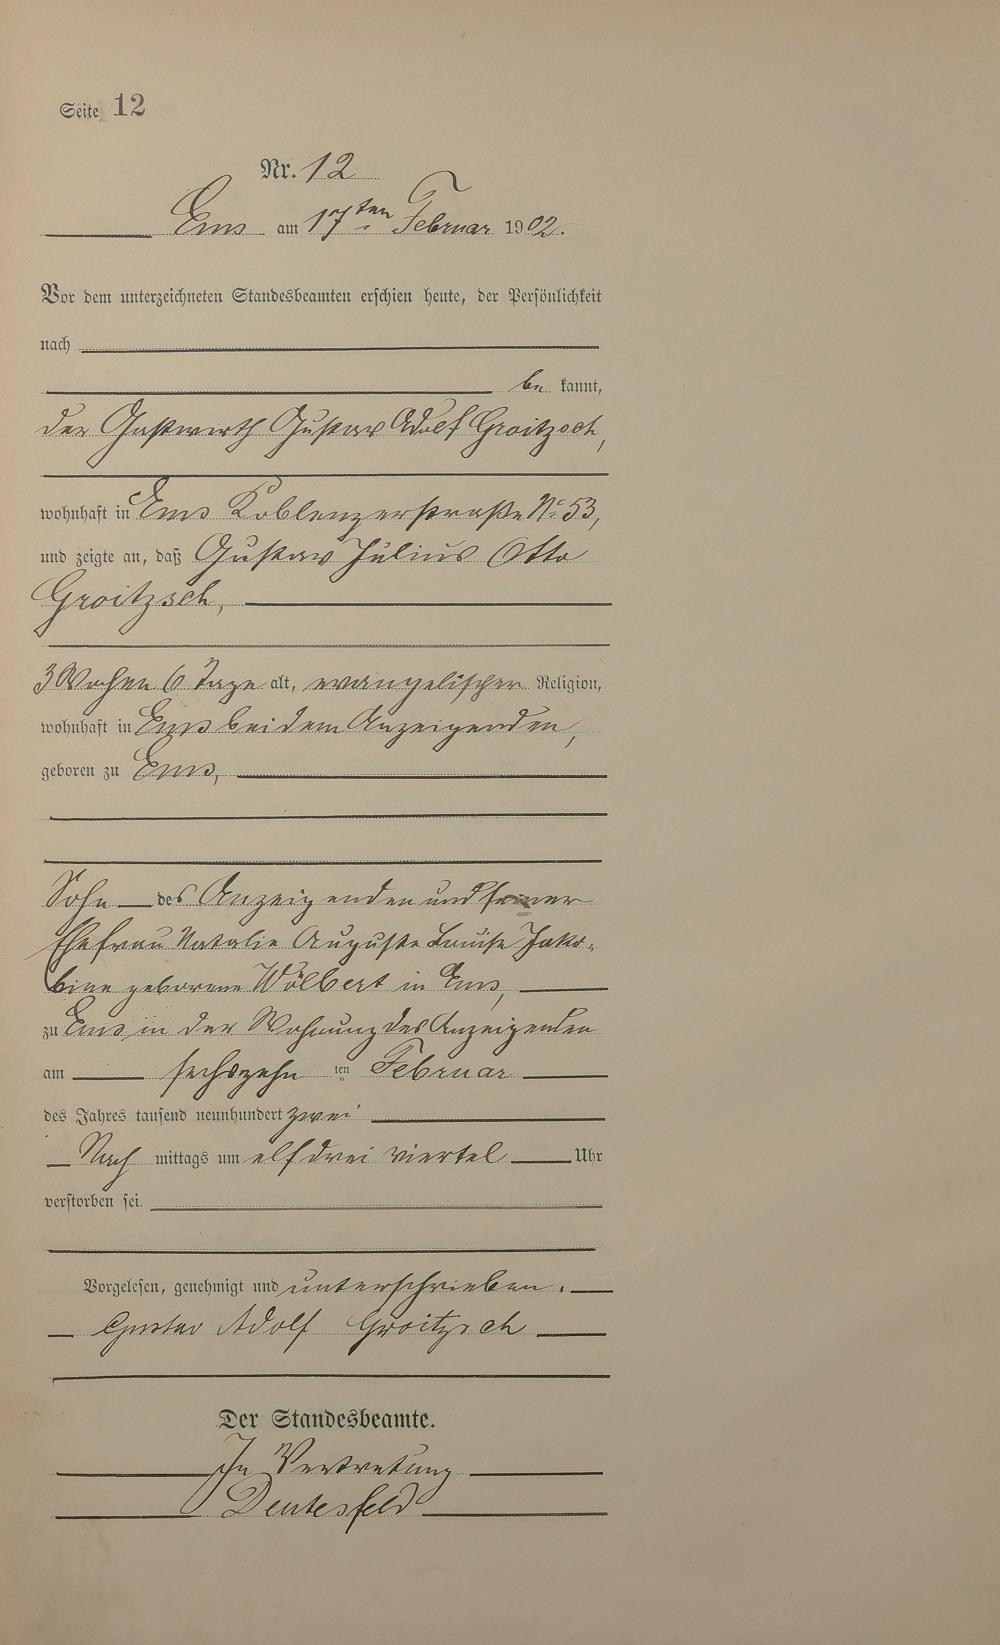 Seite 12
Nr. 12
Ems am 17ten Februar 1902.
Vor dem unterzeichneten Standesbeamten erschien heute, der Persönlichkeit
nach
be kannt,
der Gastwirth Gustav Adolf Groitzsch,
wohnhaft in Ems Koblenzerstraße No 53,
und zeigte an, daß Gustav Julius Otto
Groitzsch,
3 Wochen 6 Tage alt, evangelischer Religion,
wohnhaft in Ems bei dem Anzeigenden,
geboren zu Ems,
Sohn des Anzeigenden und seiner
Ehefrau Natalie Auguste Louise Jako-
bine geborene Wölbert in Ems,
zu Ems, in der Wohnung des Anzeigenden
am sechszehn ten Februar
des Jahres tausend neunhundert zwei
Nach mittags um elf drei viertel Uhr
verstorben sei.
Vorgelesen, genehmigt und unterschrieben.
Gustav Adolf Groitzsch
Der Standesbeamte.
In Vertretung
Deutesfeld